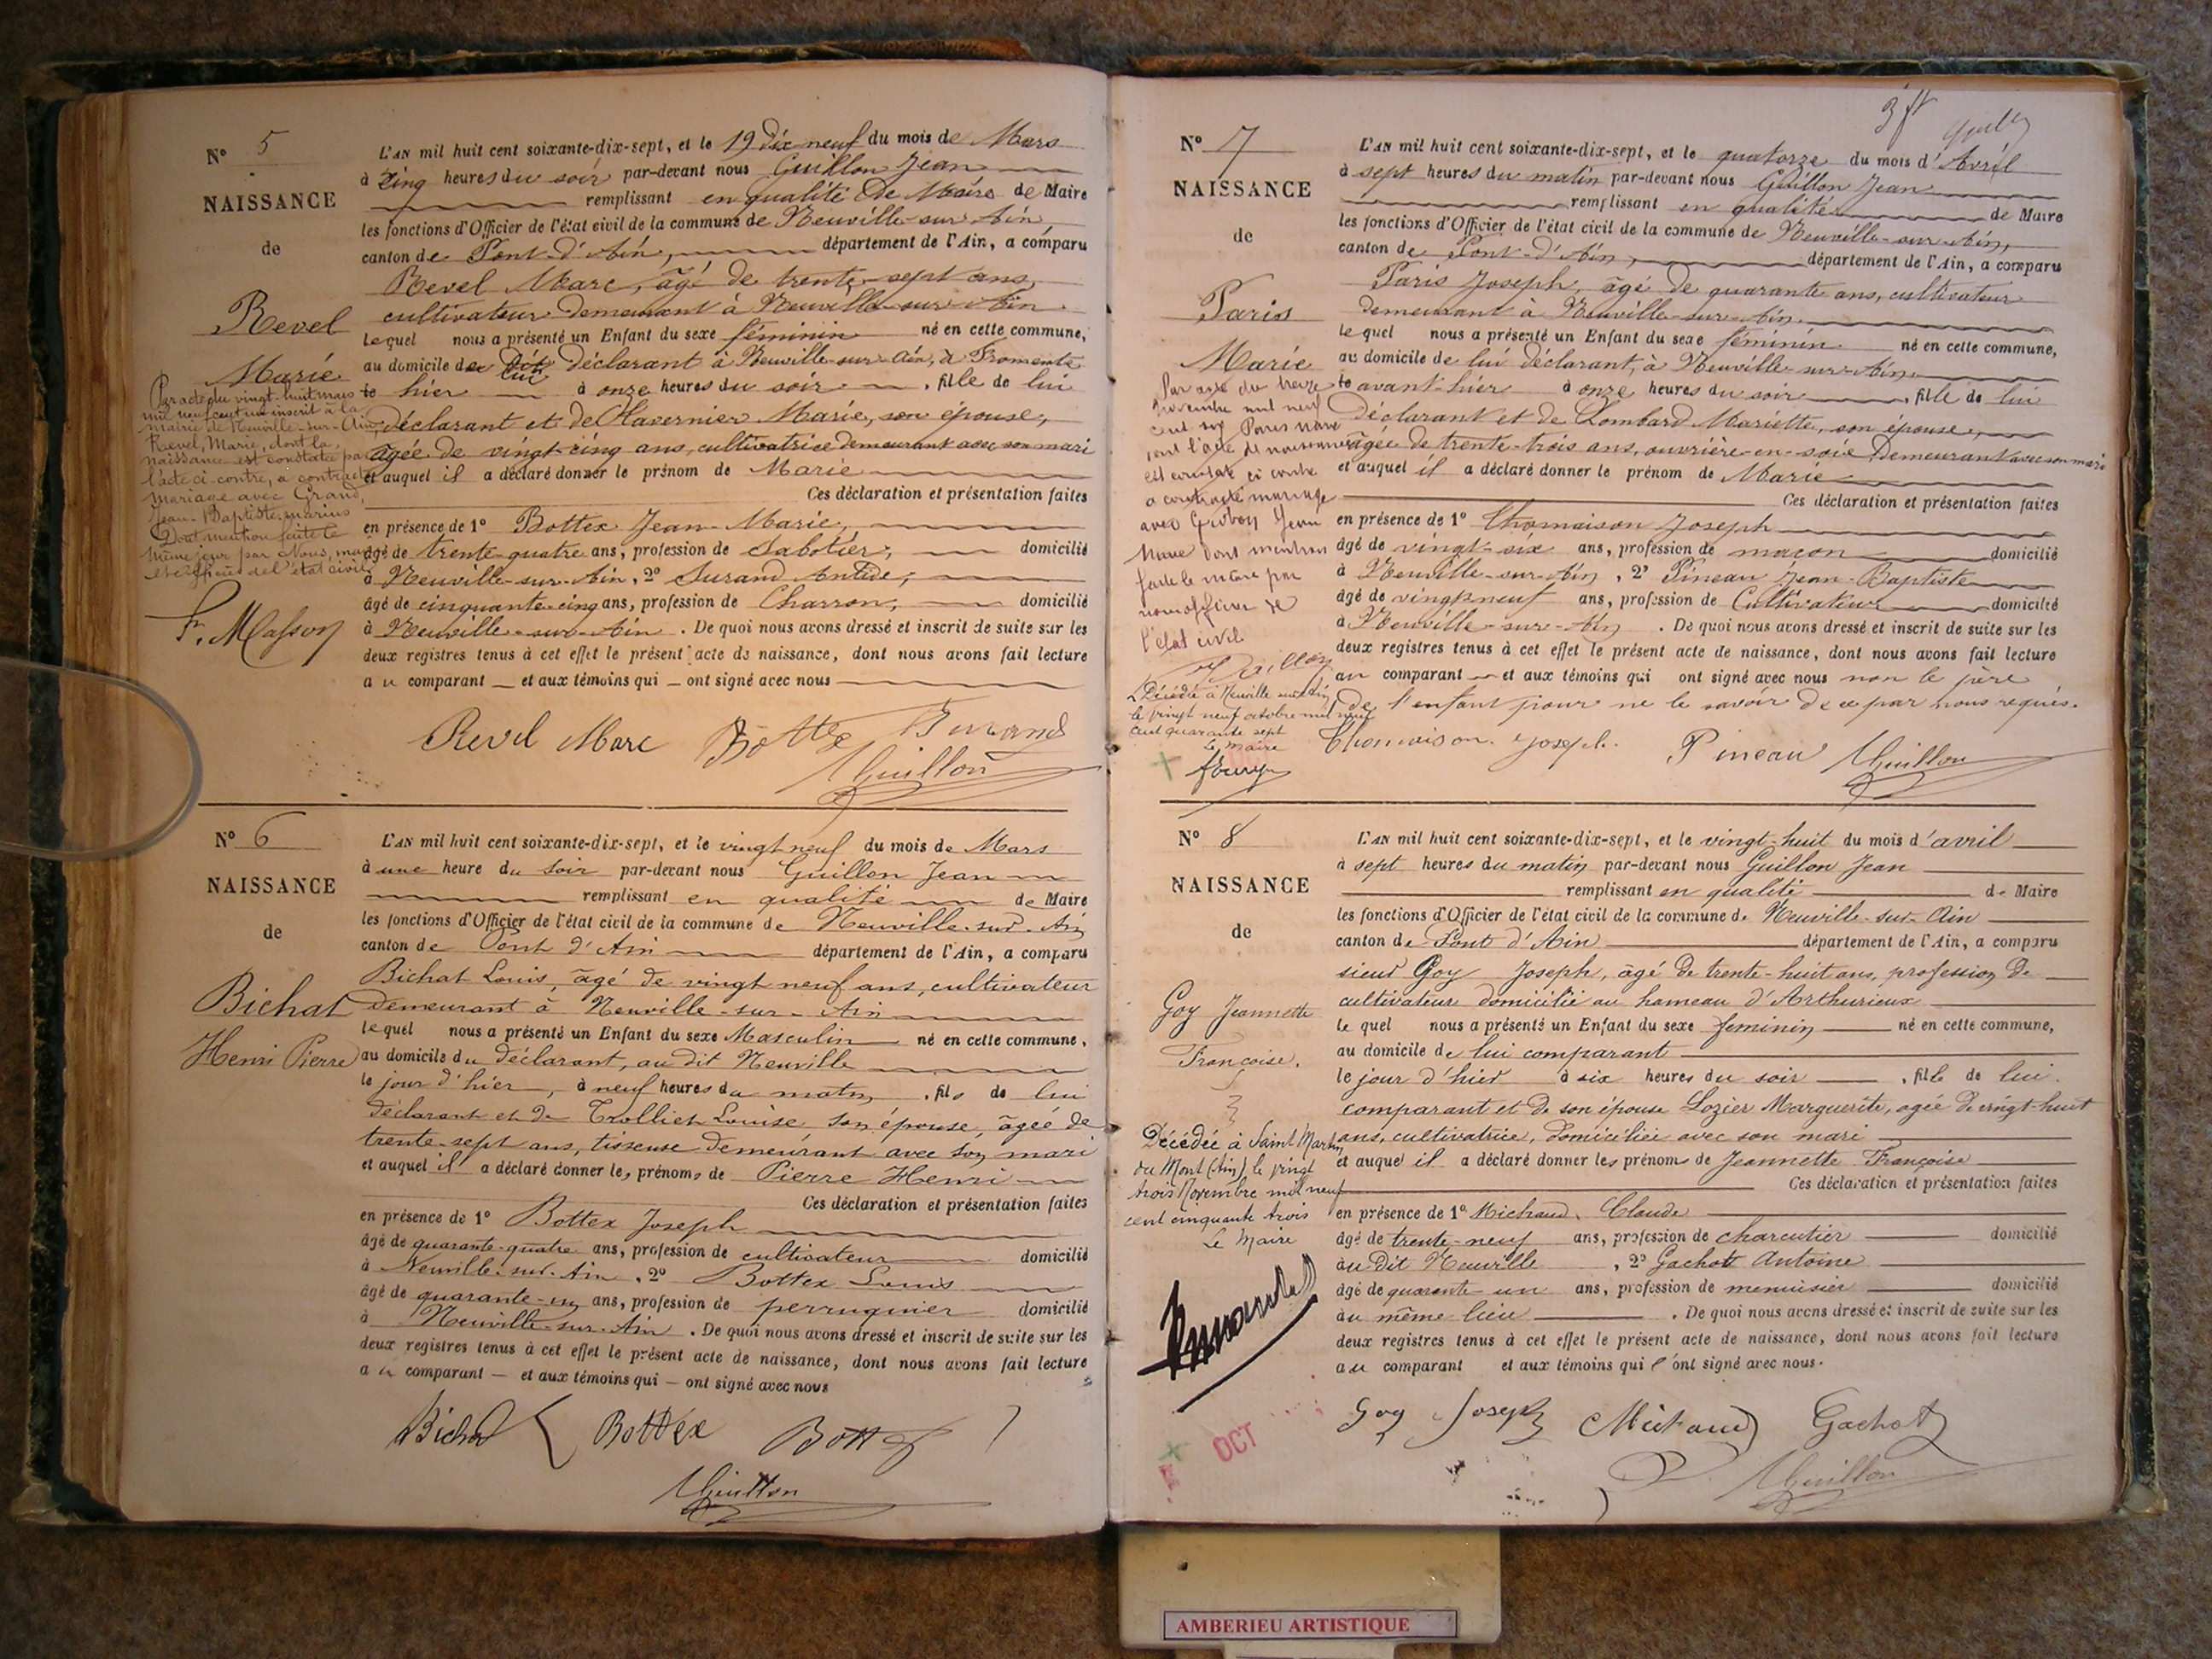 N° 5
NAISSANCE
de
Revel
Marie
Par acte du vingt-huit mars
mil neuf cent un inscrit à la
mairie de Neuville-sur-Ain,
Revel, Marie, dont la
naissance est constatée par
l'acte ci-contre, a contracté
mariage avec Grand,
Jean-Baptiste-Marius
Dont mention faite le
même jour par Nous, maire
et officier de l'état civil
F. Masson
L'AN mil huit cent soixante-dix-sept, et le 19 Dix neuf du mois de Mars
à cinq heures du soir par-devant nous Guillon Jean
remplissant en qualité de Maire de Maire
les fonctions d'Officier de l'état civil de la commune de Neuville-sur-Ain,
canton de Pont-d'Ain, département de l'Ain, a comparu
Revel Marc, âgé de trente-sept ans,
cultivateur demeurant à Neuville-sur-Ain.
Lequel nous a présenté un Enfant du sexe féminin né en cette commune,
au domicile de lui déclarant à Neuville-sur-Ain, à Fromente
le hier à onze heures du soir, fille de lui
déclarant et de Tavernier Marie, son épouse,
âgée de vingt-cinq ans, cultivatrice demeurant avec son mari
et auquel il a déclaré donner le prénom de Marie
Ces déclaration et présentation faites
en présence de 1° Bottex Jean-Marie,
âgé de trente-quatre ans, profession de sabotier, domicilié
à Neuville-sur-Ain, 2° Durand Antide,
âgé de cinquante-cinq ans, profession de Charron, domicilié
à Neuville-sur-Ain. De quoi nous avons dressé et inscrit de suite sur les
deux registres tenus à cet effet le présent acte de naissance, dont nous avons fait lecture
au comparant et aux témoins qui ont signé avec nous
Revel Marc Bottex Durand
Guillon
N° 6
NAISSANCE
de
Bichat
Henri Pierre
L'AN mil huit cent soixante-dix-sept, et le vingt neuf du mois de Mars
à une heure du soir par-devant nous Guillon Jean
remplissant en qualité de Maire
les fonctions d'Officier de l'état civil de la commune de Neuville-sur-Ain
canton de Pont d'Ain département de l'Ain, a comparu
Bichat Louis, âgé de vingt neuf ans, cultivateur
demeurant à Neuville-sur-Ain
lequel nous a présenté un Enfant du sexe Masculin né en cette commune,
au domicile du déclarant, au dit Neuville
le jour d'hier, à neuf heures du matin, fils de lui
déclarant et de Trolliet Louise son épouse, âgée de
trente-sept ans, tisseuse demeurant avec son mari
et auquel il a déclaré donner les prénoms de Pierre Henri
Ces déclaration et présentation faites
en présence de 1° Bottex Joseph
âgé de quarante-quatre ans, profession de cultivateur domicilié
à Neuville-sur-Ain, 2° Bottex Louis
âgé de quarante-un ans, profession de perruquier domicilié
à Neuville-sur-Ain. De quoi nous avons dressé et inscrit de suite sur les
deux registres tenus à cet effet le présent acte de naissance, dont nous avons fait lecture
au comparant — et aux témoins qui — ont signé avec nous
Bichat Bottex Bottex
Guillon
N° 7
NAISSANCE
de
Paris
Marie
Par acte du treize
novembre mil neuf
cent six Paris Marie
dont l'acte de naissance
est constaté ci contre
a contracté mariage
avec Jean
Marie dont mention
faite le même par
nous officier de
l'état civil
Guillon
Décédée à Neuville sur Ain
le vingt neuf octobre mil neuf
cent quarante sept
Le maire
L'AN mil huit cent soixante-dix-sept, et le quatorze du mois d'Avril
à sept heures du matin par-devant nous Guillon Jean
remplissant en qualité de Maire
les fonctions d'Officier de l'état civil de la commune de Neuville-sur-Ain,
canton de Pont-d'Ain, département de l'Ain, a comparu
Paris Joseph, âgé de quarante ans, cultivateur
demeurant à Neuville-sur-Ain.
lequel nous a présenté un Enfant du sexe féminin né en cette commune,
au domicile de lui déclarant, à Neuville-sur-Ain
le avant-hier à onze heures du soir, fille de lui
déclarant et de Lombard Mariette, son épouse,
âgée de trente-trois ans, ouvrière-en-soie demeurant avec son mari
et auquel il a déclaré donner le prénom de Marie
Ces déclaration et présentation faites
en présence de 1° Thomaison Joseph
âgé de vingt-six ans, profession de maçon domicilié
à Neuville-sur-Ain, 2° Pineau Jean-Baptiste
âgé de vingt-neuf ans, profession de Cultivateur domicilié
à Neuville-sur-Ain. De quoi nous avons dressé et inscrit de suite sur les
deux registres tenus à cet effet le présent acte de naissance, dont nous avons fait lecture
au comparant et aux témoins qui ont signé avec nous non le père
de l'enfant pour ne le savoir de ce par nous requis.
Thomaison Joseph Pineau Guillon
N° 8
NAISSANCE
de
Goy Jeannette
Françoise.
Décédée à Saint Martin
du Mont (Ain) le vingt
trois Novembre mil neuf
cent cinquante trois
Le Maire
OCT
L'AN mil huit cent soixante-dix-sept, et le vingt-huit du mois d'avril
à sept heures du matin par-devant nous Guillon Jean
remplissant en qualité de Maire
les fonctions d'Officier de l'état civil de la commune de Neuville-sur-Ain
canton de Pont d'Ain département de l'Ain, a comparu
sieur Goy Joseph, âgé de trente-huit ans, profession de
cultivateur domicilié au hameau d'Arthurieux
le quel nous a présenté un Enfant du sexe féminin né en cette commune,
au domicile de lui comparant
le jour d'hier à six heures du soir, fille de lui.
comparant et de son épouse Lozier Marguerite, agée de vingt-huit
ans, cultivatrice, domiciliée avec son mari
et auquel il a déclaré donner les prénoms de Jeannette Françoise
Ces déclaration et présentation faites
en présence de 1° Michaud Claude
âgé de trente-neuf ans, profession de charcutier domicilié
au dit Neuville, 2° Gachot Antoine
âgé de quarante un ans, profession de menuisier domicilié
au même lieu. De quoi nous avons dressé et inscrit de suite sur les
deux registres tenus à cet effet le présent acte de naissance, dont nous avons fait lecture
au comparant et aux témoins qui l'ont signé avec nous.
Goy Joseph Michaud Gachot
Guillon
AMBERIEU ARTISTIQUE